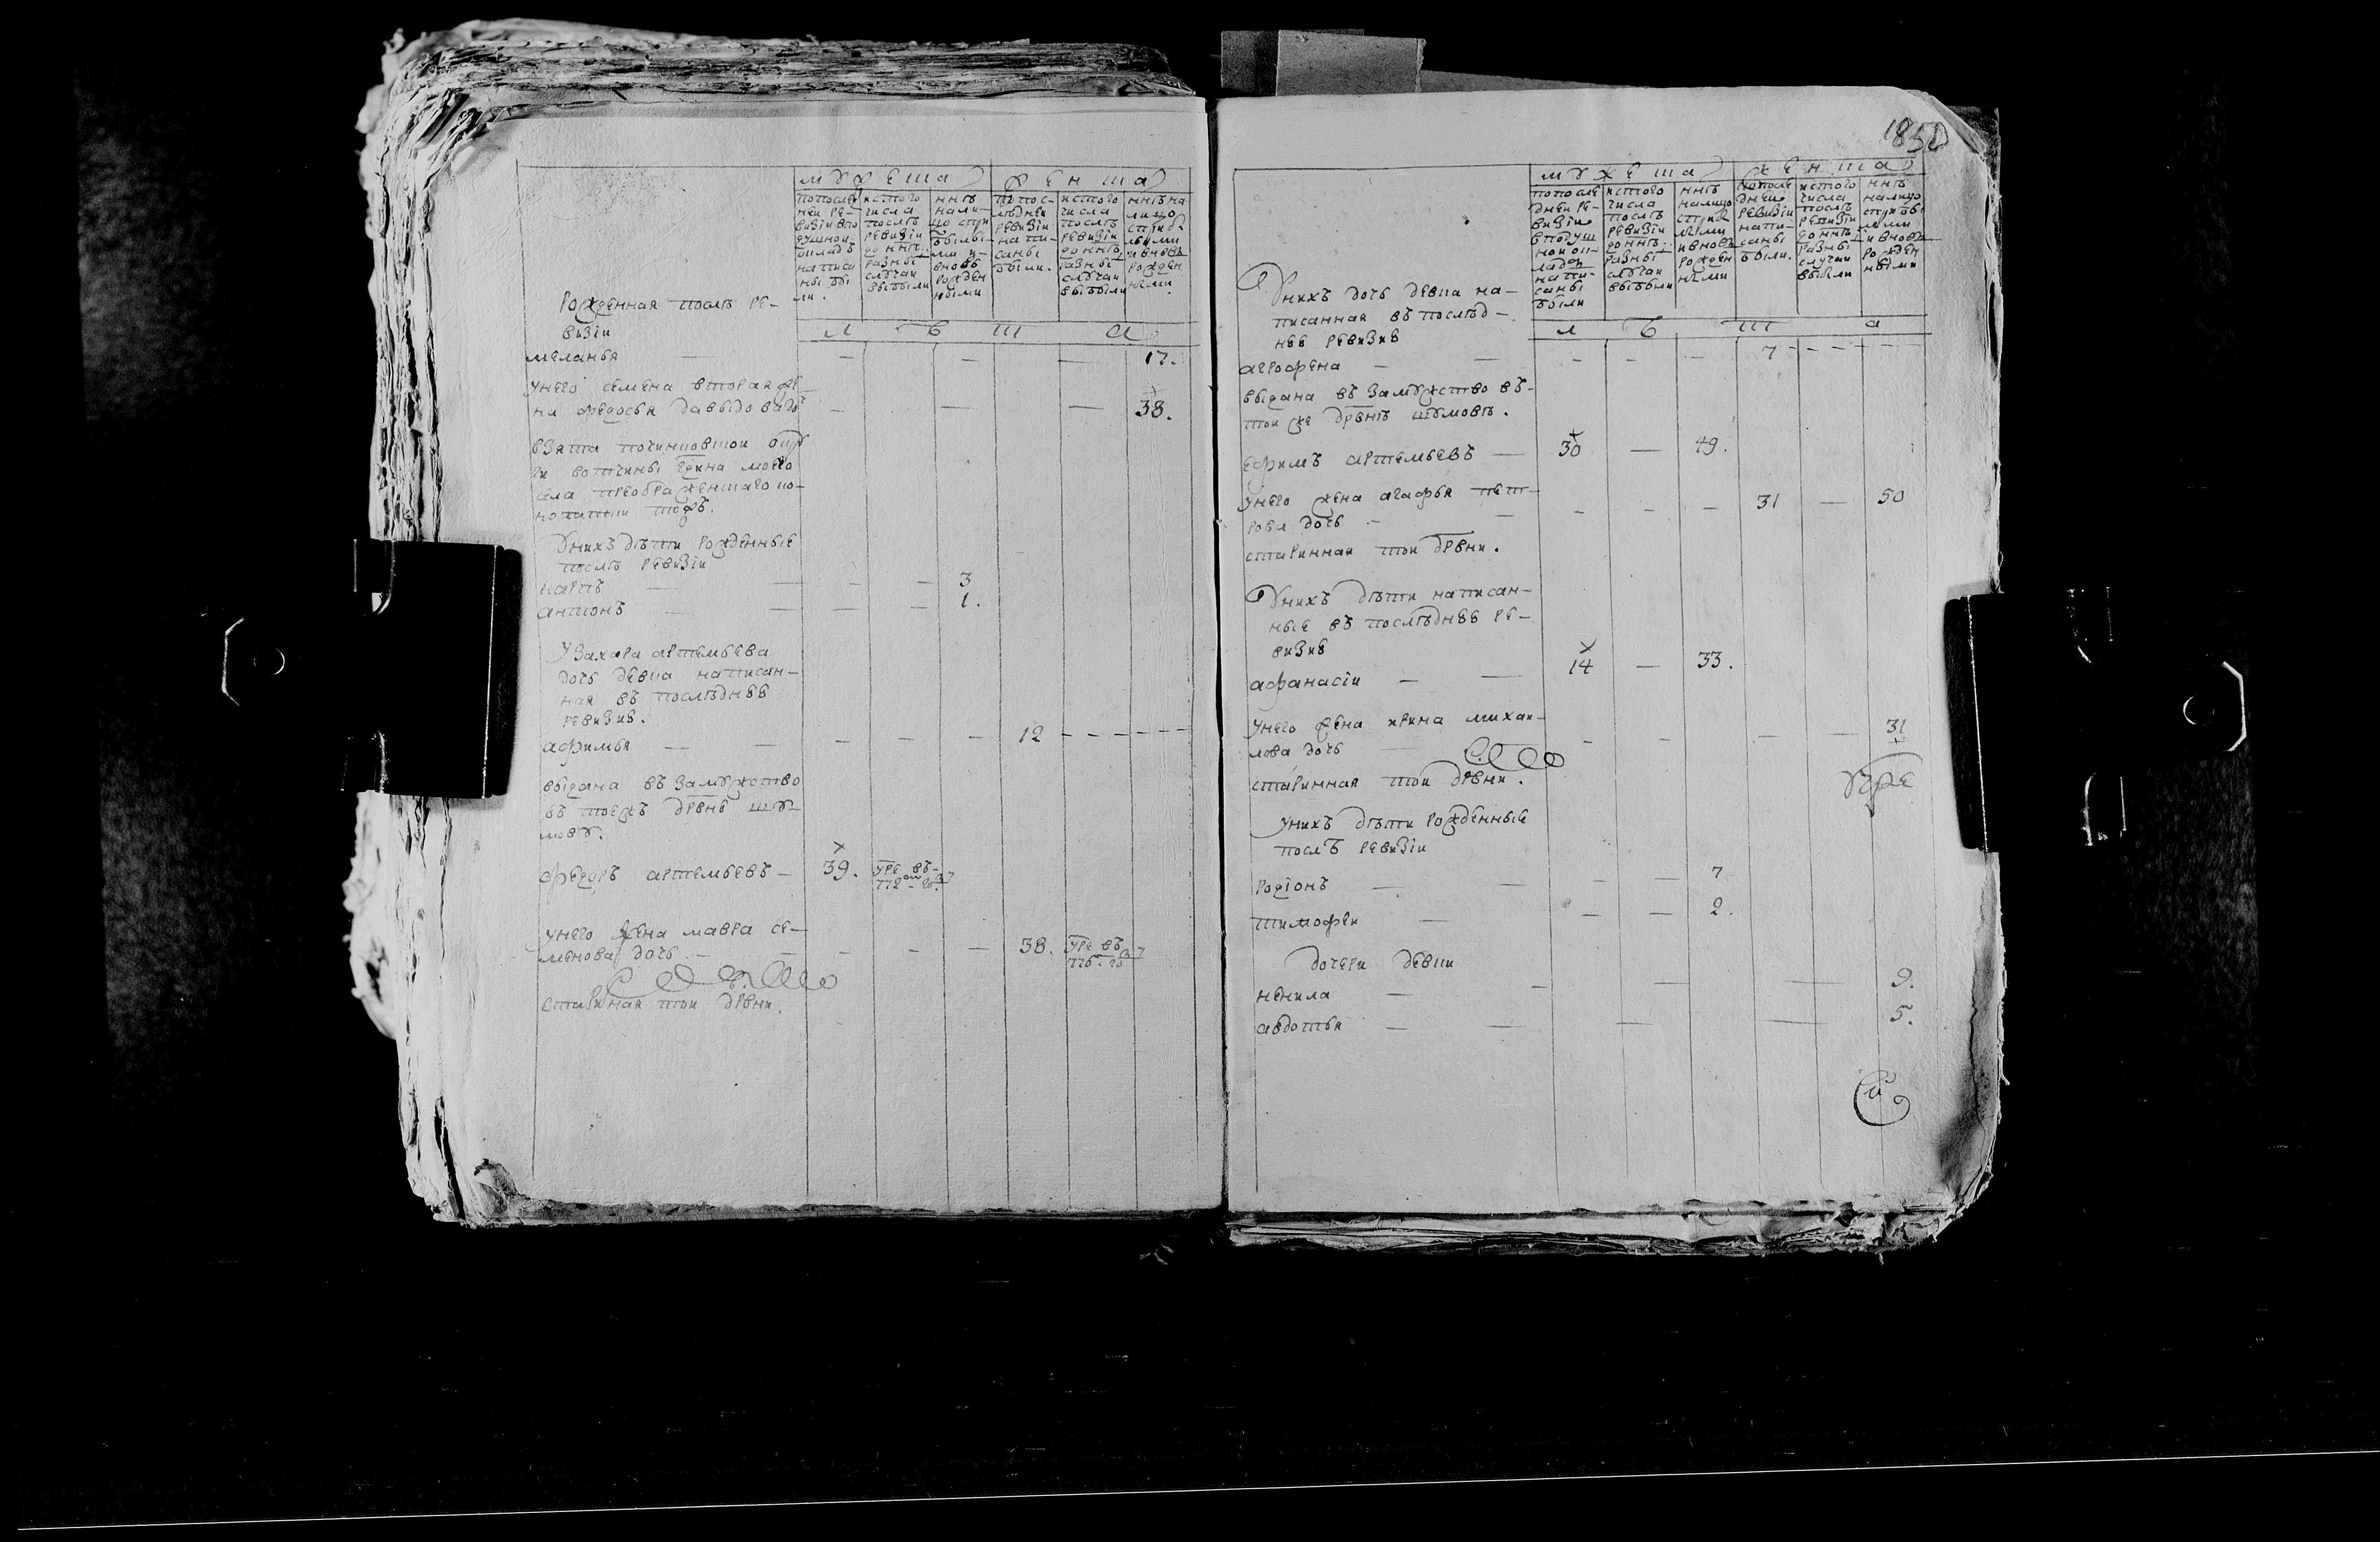 мужеска
женска
попослед
ней ре-
визіи впо
душной
окладъ
написа
ны бы
ли.
истого
числа
послѣ
ревизіи
до ннѣ
разны
случаи
выбыли
ннѣ
нали-
цо спри
былы-
ми и-
вновь
рожден
ными
попос-
лѣдней
ревизіи
напи-
саны
были.
истого
числа
послѣ
ревизіи
до ннѣ
разны
случаи
выбыли
ннѣ на
лицо
сприб-
лыми
ивновь
рожден
ными
лѣта
Рожденная послѣ ре-
визіи
меланья — — — — 17.
унего семена вторая же
на федосья давыдова до — — — 38.
взята
вотчины моего
села преображенского
Унихъ дѣти рожденные
послѣ ревизіи
карпъ — — — — 3
антонъ — — — — 1.
Узахара артемьева
дочь девка написан-
ная въ послѣднѣе
ревизие.
афимья — — — — — 12 - - - -
выдана въ замужство
въ тоежъ дрвне шу-
мову.
федоръ артемьевъ — 39. уре въ-
772 м 20ду
унего жена мавра се-
менова дочь — — — — 38. уре въ
776 м 20ду
старинная той дрвни.
185
мужеска
женска
попосле
дней ре-
визіи
вподуш
ной ок-
ладъ
напи-
саны
были
истого
числа
послѣ
ревизіи
до ннѣ
разны
случаи
выбыли
ннѣ
налицо
сприб
лыми
ивновь
рожден
ными
попосле
дней
ревизіи
напи-
саны
были.
истого
числа
послѣ
ревизіи
до ннѣ
разны
случаи
выбыли
ннѣ
налицо
сприбы
лыми
ивновь
рожден
ными
лѣта
Унихъ дочь девка на-
писанная въ послѣд-
нѣе ревизие
агрофена — — — — — 7 - - - -
выдана въ замужство въ-
той же дрвнѣ шумовѣ.
ефимъ артемьевъ — 30 — 49.
унего жена агафья пет-
рова дочь — — — — — 31 — 50
старинная той дрвни.
Унихъ дѣти написан-
ные въ послѣднѣе ре-
визие
афанасіи — — 14 — 33.
унего жена ирина михаи-
лова дочь — — — — 31
старинная той дрвни.
унихъ дѣти рожденные
послѣ ревизіи
родіонъ — — — — 7
тимофеи — — — 2.
дочери девки
ненила — — — — 9.
авдотья — — — — 5.